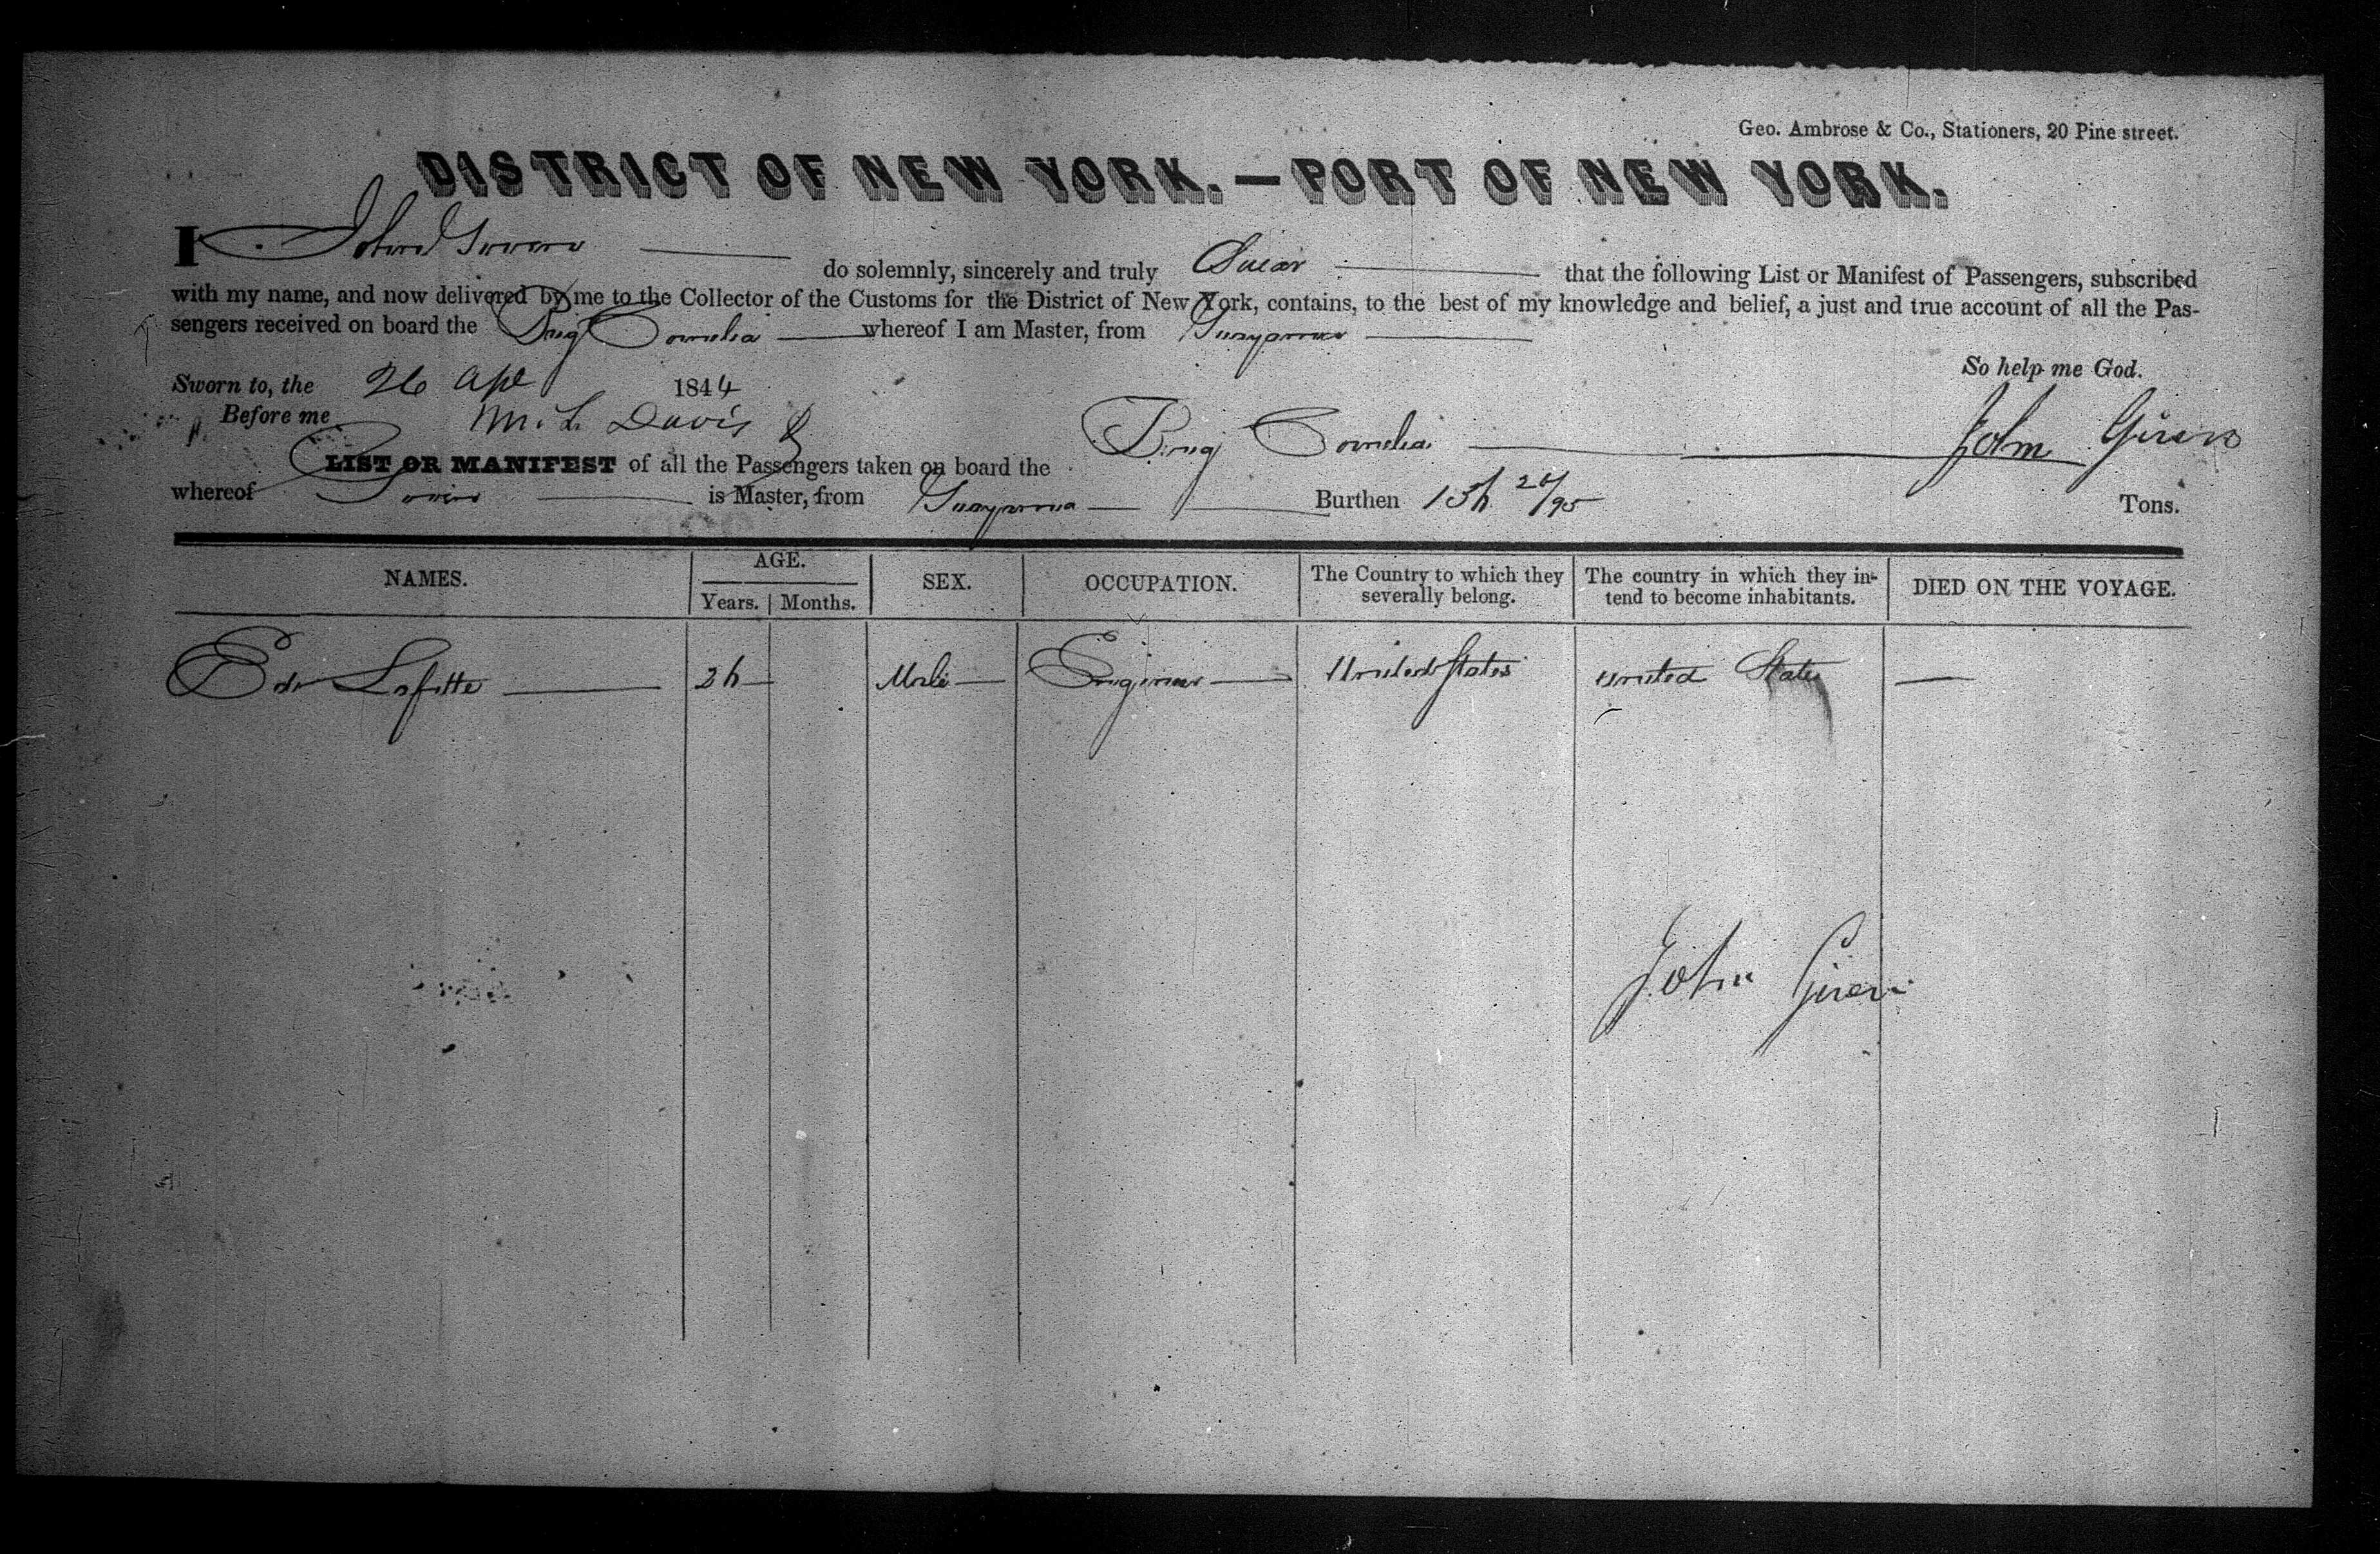 Geo. Ambrose & Co., Stationers, 20 Pine street.
DISTRICT OF NEW YORK.—PORT OF NEW YORK.
I John do solemnly, sincerely and truly Swear that the following List or Manifest of Passengers, subscribed
with my name, and now delivered by me to the Collector of the Customs for the District of New York, contains, to the best of my knowledge and belief, a just and true account of all the Pas-
sengers received on board the Brig Cornelia whereof I am Master, from Guayama
So help me God.
Sworn to, the 26 Apl 1844
Before me M. L. Davis
John
LIST OR MANIFEST of all the Passengers taken on board the Brig Cornelia
whereof is Master, from Guayama Burthen Tons.
NAMES. AGE. Years. Months. SEX. OCCUPATION. The Country to which they severally belong. The country in which they in-tend to become inhabitants. DIED ON THE VOYAGE.
Ed Lafitte Male Engineer United States United States
John